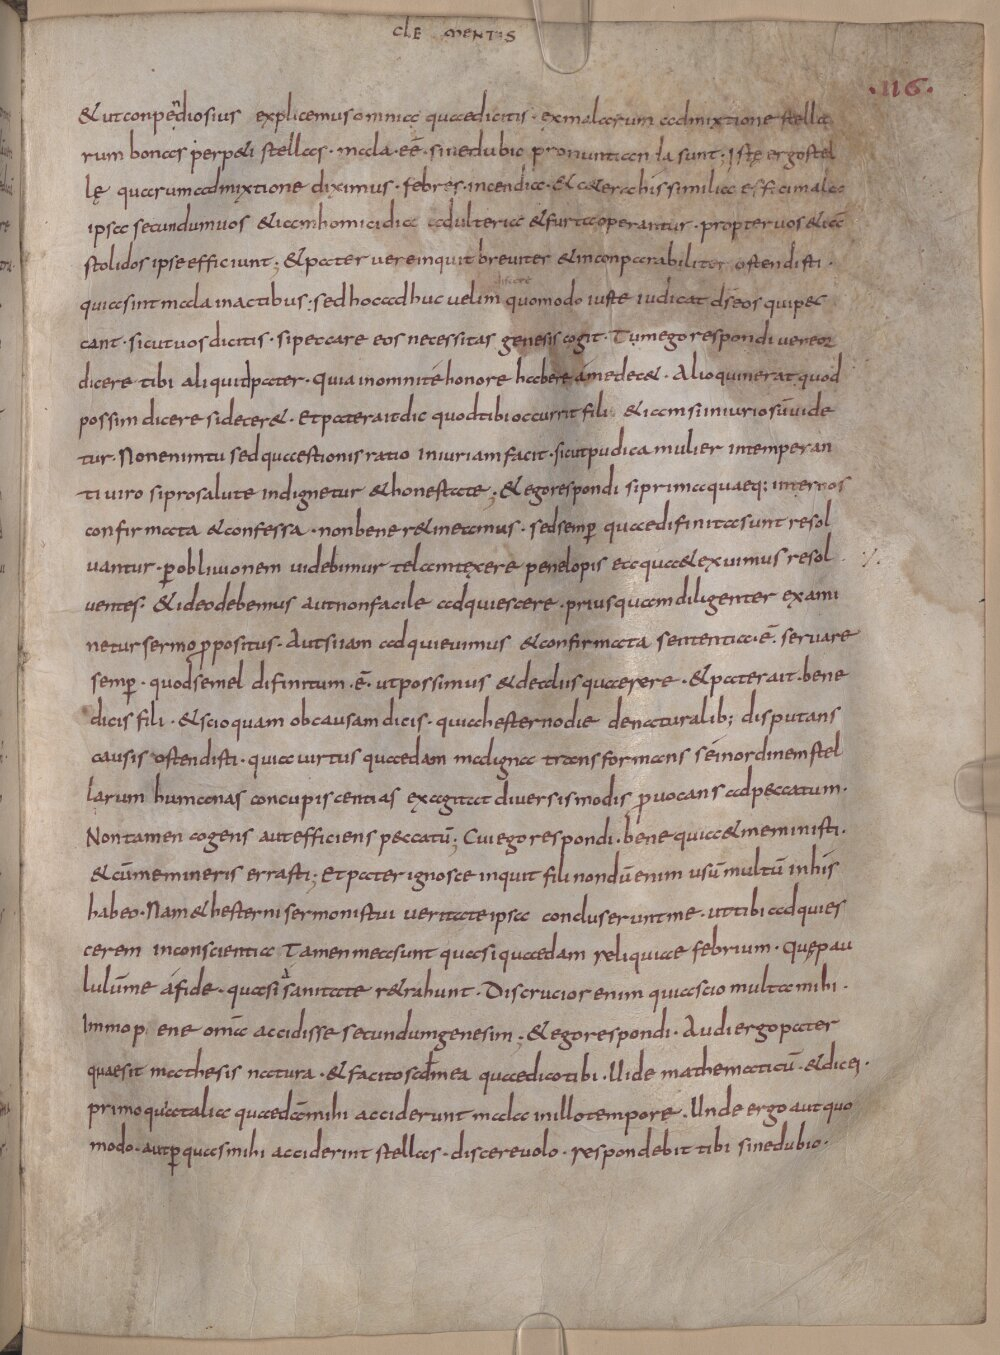 CLEMENTIS
·116·
& ut conpendiosius explicemus omnia quae dicitis · ex malarum admixtione stella
rum bonas per peli stellas · mala · eē · sine dubio pronuntianda sunt ; Istę ergo stel
lę quarum admixtione diximus · febres · incendia · & cetera his similia effici mala
ipsa secundum uos & iam homicidia adulteria & furta operantur · propter uos & iā
stolidos ipse efficiunt ; & pater uere inquit breuiter & inconparabiliter ostendisti ·
discere
quia sint mala in actibus · sed hoc adhuc uelim quomodo iuste iudicat ds eos qui pec
cant · sicut uos dicitis · si peccare eos necessitas genesis cogit · Tum ego respondi uereor
dicere tibi aliquid pater · Quia in omni te honore habere ám edec& · Alioquin erat quod
possim dicere si decer& · Et pater ait dic quod tibi occurrit fili & iam si iniuriosū uide
tur · Non enim tu sed quaestionis ratio iniuriam facit · sicut pudica mulier intemperan
ti uiro si pro salute indignetur & honestate ; & ego respondi si prima quaeq; inter nos
confirmata & confessa · non bene r&inetamus · sed semp quae difinita sunt resol
uantur · p obliuionem uidebimur telam texere penelopis ea quae & exuimus resol ·/·
uentes : & ideo debemus aut non facile adquiescere · prius quam diligenter exami
netur sermo ppositus · Aut si iam adquieuimus & confirmata sententia · ē · seruare
semp · quod semel difinitum · ē · ut possimus & de aliis quaerere · & pater ait · bene
dicis fili · & scio quam ob causam dicis · quia hesterno die de naturalib; disputans
causis ostendisti · quia uirtus quaedam maligna transformans se in ordinem stel
larum humanas concupiscentias exagitat diuersis modis puocans ad peccatum ·
Non tamen cogens aut efficiens peccatū ; Cui ego respondi · bene quia & meministi ·
& cū memineris errasti ; Et pater ignosce inquit fili nondū enim usū multū in his
habeo · Nam & hesterni sermonis tui ueritate ipsa concluserunt me · ut tibi adquies
cerem in conscientia Tamen mea sunt quasi quaedam reliquiae febrium · Quę pau
lulū me á fide · quasi á sanitate r&rahunt · Discrucior enim quia scio multa mihi ·
Immo pene omīa accidisse secundum genesim ; & ego respondi · Audi ergo pater
quae sit mathesis natura · & facito scdm ea quae dico tibi · Uide mathematicū · & dic ei ·
primo quia talia quaedā mihi acciderunt mala in illo tempore · Unde ergo aut quo
modo · aut p quas mihi acciderint stellas · discere uolo · respondebit tibi sine dubio ·